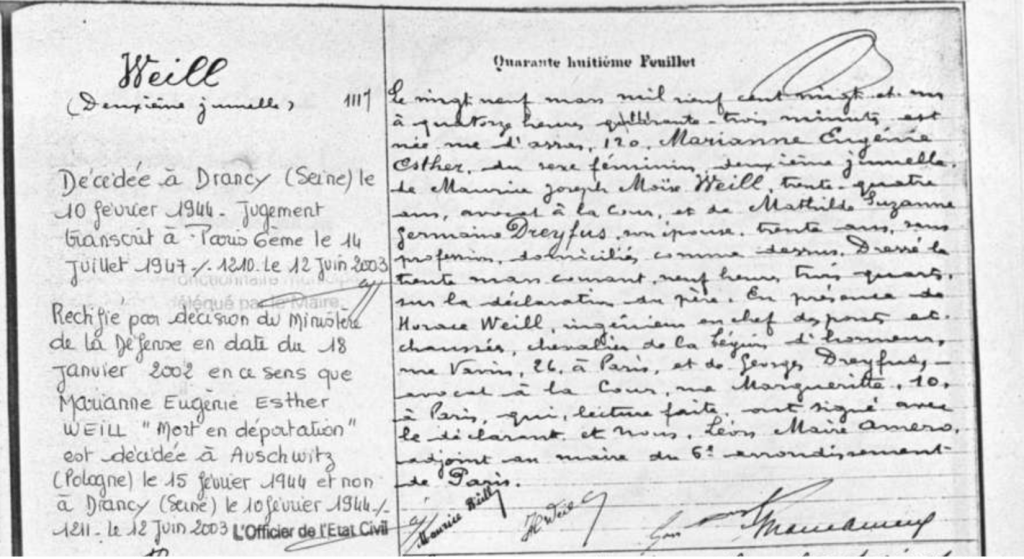 Weill
(Deuxième jumelle)
1117
Décédée à Drancy (Seine) le
10 février 1944. Jugement
transcrit à Paris 6ème le 14
Juillet 1947 ./. 1210. Le 12 Juin 2003
délégué par le Maire,
Rectifié par décision du Ministère
de la Défense en date du 18
janvier 2002 en ce sens que
Marianne Eugénie Esther
WEILL "Mort en déportation"
est décédée à Auschwitz
(Pologne) le 15 février 1944 et non
à Drancy (Seine) le 10 février 1944 ./.
1211. Le 12 Juin 2003 L'Officier de l'Etat Civil
Quarante huitième Feuillet
Le vingt neuf mars mil neuf cent vingt et un
à quatorze heures quarante-trois minutes est
née rue d'assas, 120, Marianne Eugénie
Esther, du sexe féminin, deuxième jumelle,
de Maurice Joseph Moïse Weill, trente-quatre
ans, avocat à la Cour, et de Mathilde Suzanne
Germaine Dreyfus, son épouse, trente ans, sans
profession, domiciliés comme dessus. Dressé le
trente mars courant, neuf heures trois quarts,
sur la déclaration du père. En présence de
Horace Weill, ingénieur en chef des ponts et
chaussées, chevalier de la Légion d'honneur,
rue Vavin, 26, à Paris, et de Georges Dreyfus,
avocat à la Cour, rue Margueritte, 10,
à Paris, qui, lecture faite, ont signé avec
le déclarant et Nous, Léon Marie Amero,
adjoint au maire du 6e arrondissement
de Paris.
Maurice Weill